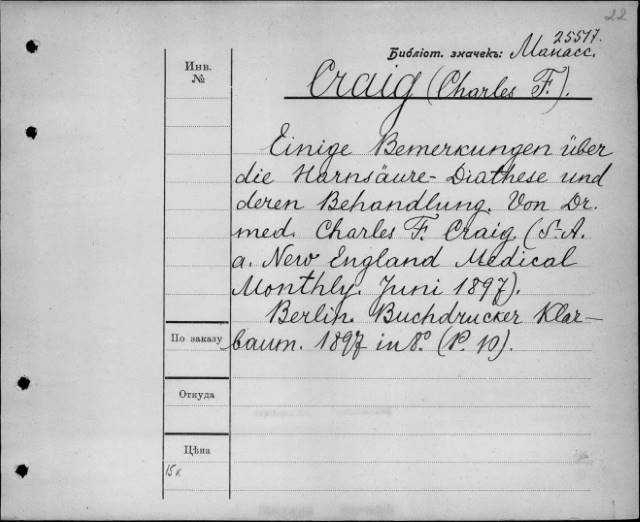 22
25517.
Библіот. значекъ: Манасс.
Инв.
№
Craig (Charles F.).
Einige Bemerkungen über
die Harnsäure-Diathese und
deren Behandlung. Von Dr.
med. Charles F. Craig (S. A.
a. New England Medical
Monthly. Juni 1897).
Berlin. Buchdrucker Klar-
baum. 1897 in 8º. (P. 10).
По заказу
Откуда
Цѣна
15 к